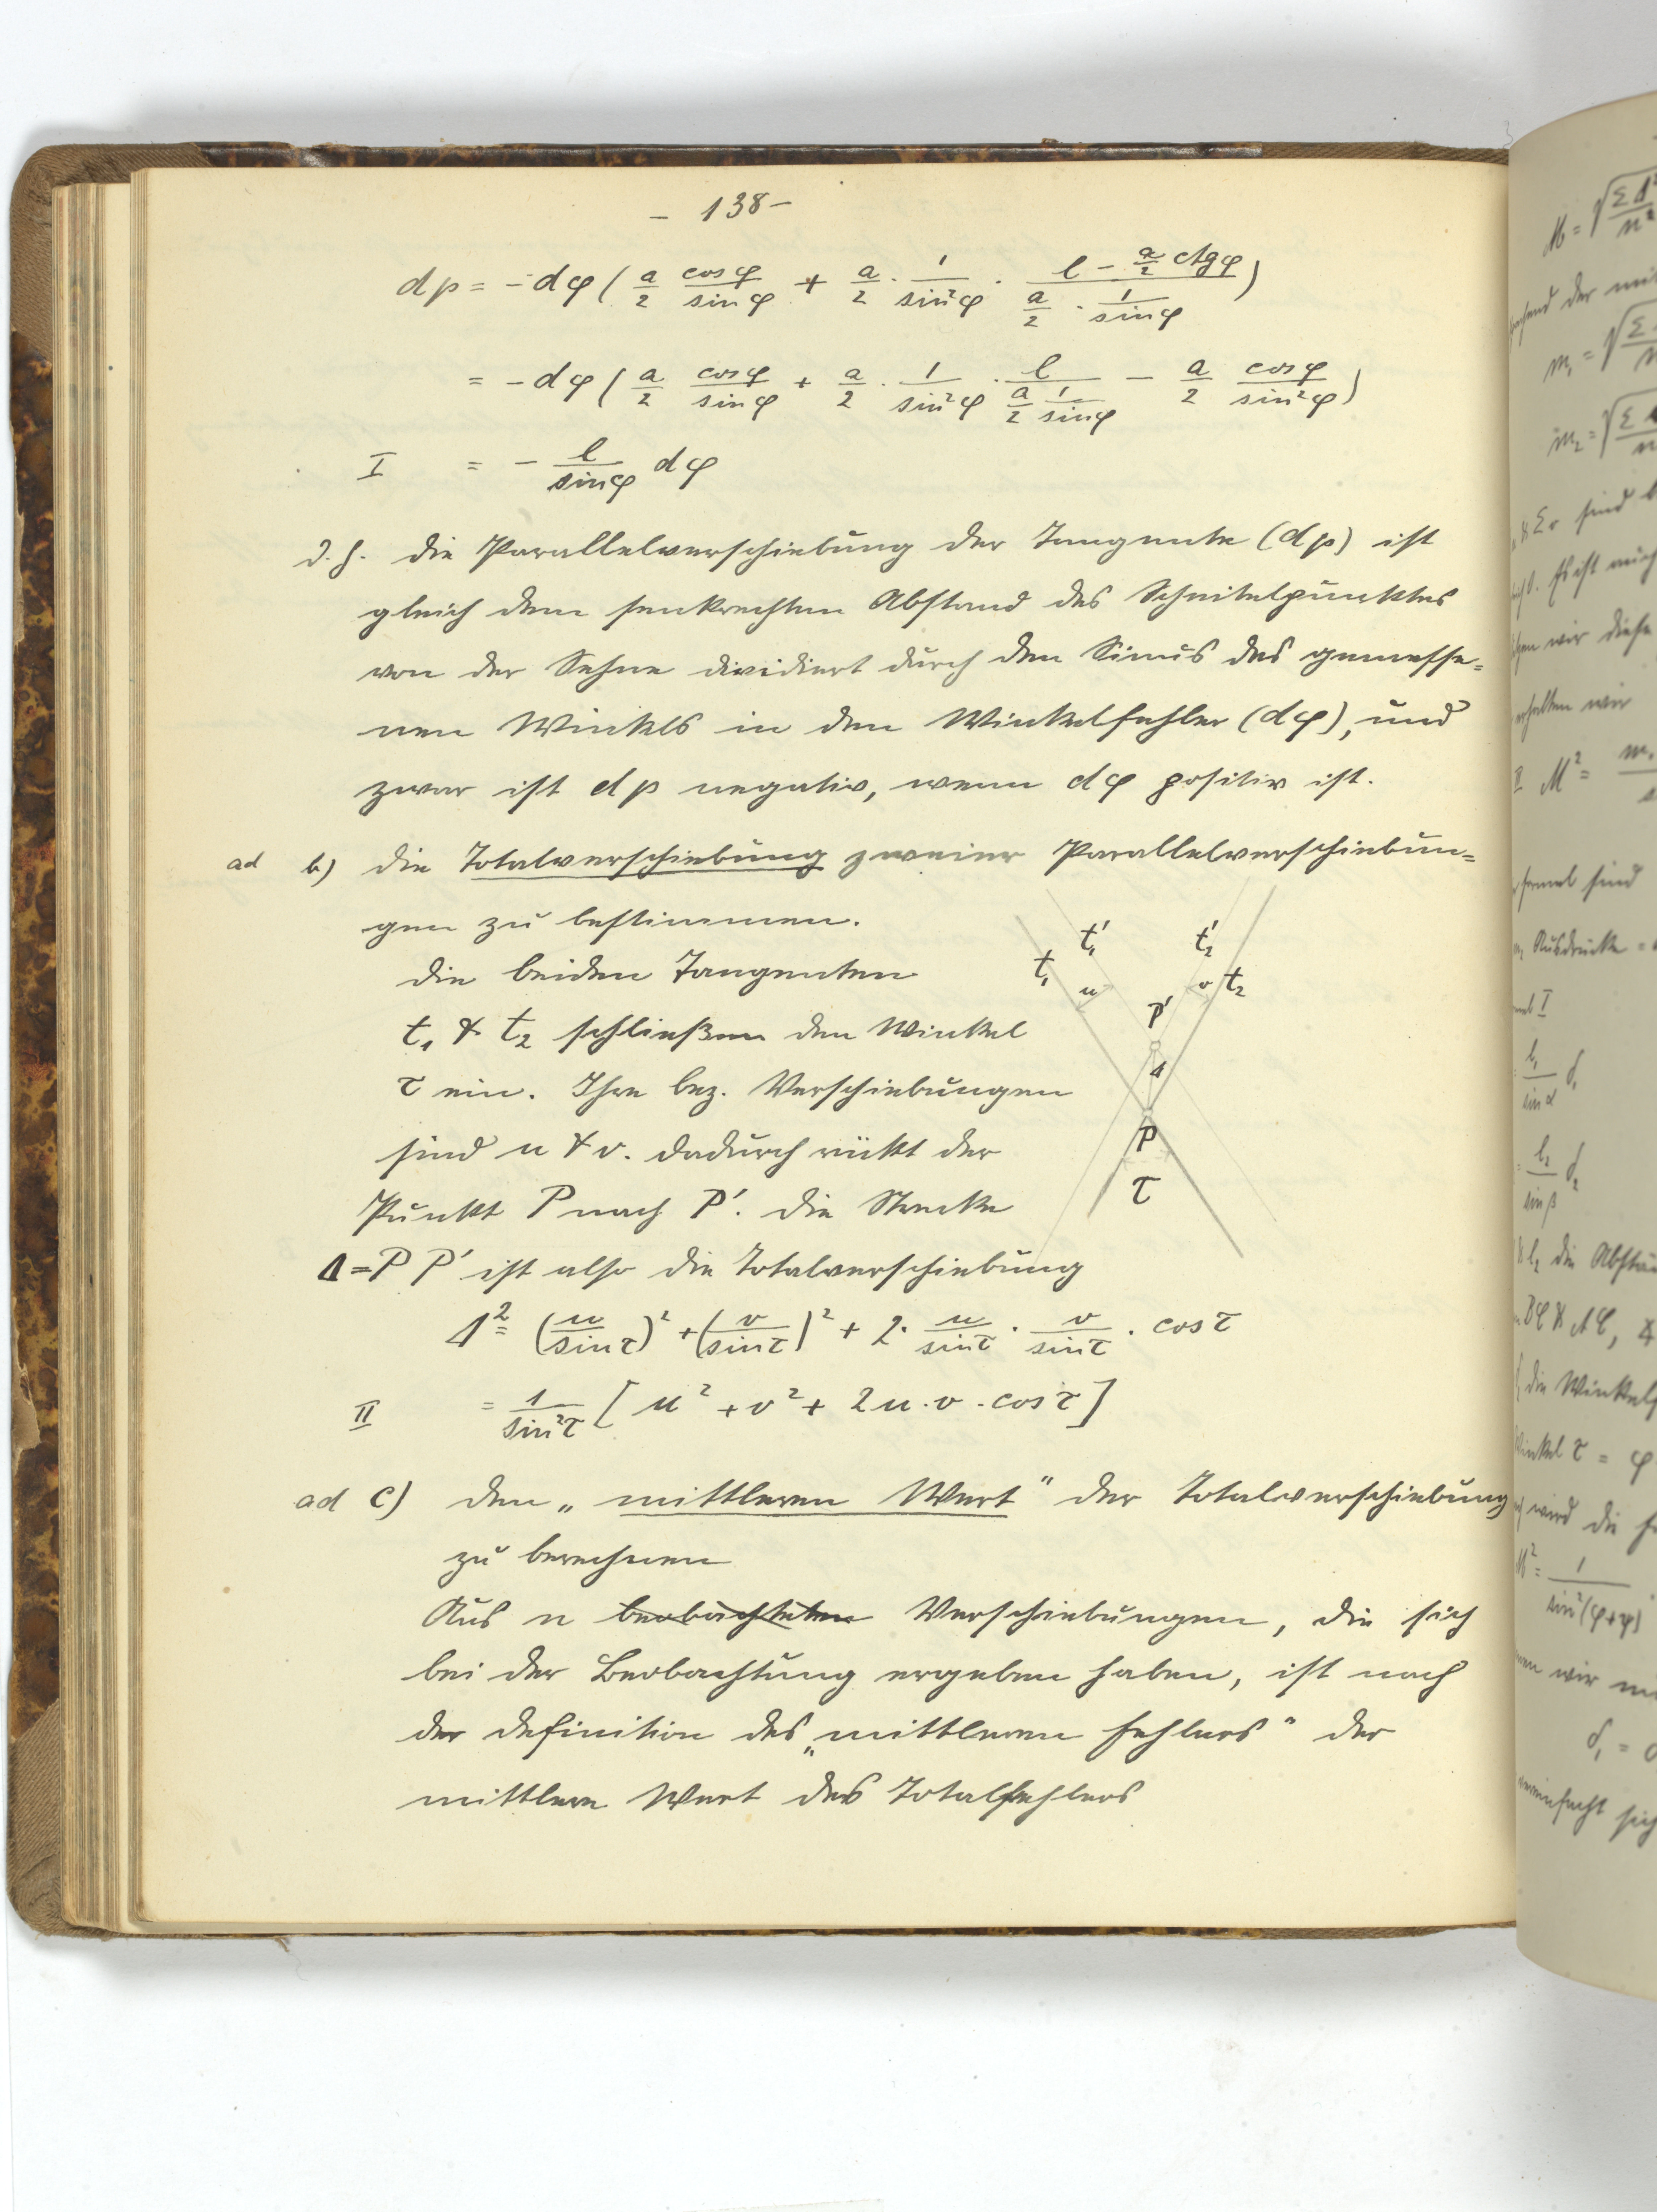 - 138 -
dp = - dφ ( a/2 cosφ/sinφ + a/2 · 1/sin²φ · (l - a/2 ctgφ)/(a/2 · 1/sinφ) )
= - dφ ( a/2 cosφ/sinφ + a/2 · 1/sin²φ · l/(a/2 1/sinφ) - a/2 cosφ/sin²φ )
I = - l/sinφ dφ
d. h. die Parallelverschiebung der Tangente (dp) ist
gleich dem senkrechten Abstand des Scheitelpunktes
von der Sehne dividiert durch den Sinus des gemesse=
nen Winkels in den Winkelfehler (dφ), und
zwar ist dp negativ, wenn dφ positiv ist.
ad b) die Totalverschiebung zweier Parallelverschiebun=
gen zu bestimmen.
die beiden Tangenten
t₁ & t₂ schließen den Winkel
τ ein. Ihre bez. Verschiebungen
sind u & v. dadurch rückt der
Punkt P nach P'. die Strecke
Δ = P P' ist also die Totalverschiebung
t₁ t₁' t₂' t₂
u v
P'
Δ
P
τ
Δ² = (u/sinτ)² + (v/sinτ)² + 2 · u/sinτ · v/sinτ · cosτ
II = 1/sin²τ [ u² + v² + 2u · v · cosτ ]
ad c) den „mittleren Wert" der Totalverschiebung
zu berechnen
Aus n beobachteten Verschiebungen, die sich
bei der Beobachtung ergeben haben, ist nach
der definition des „mittleren fehlers" der
mittlere Wert des Totalfehlers